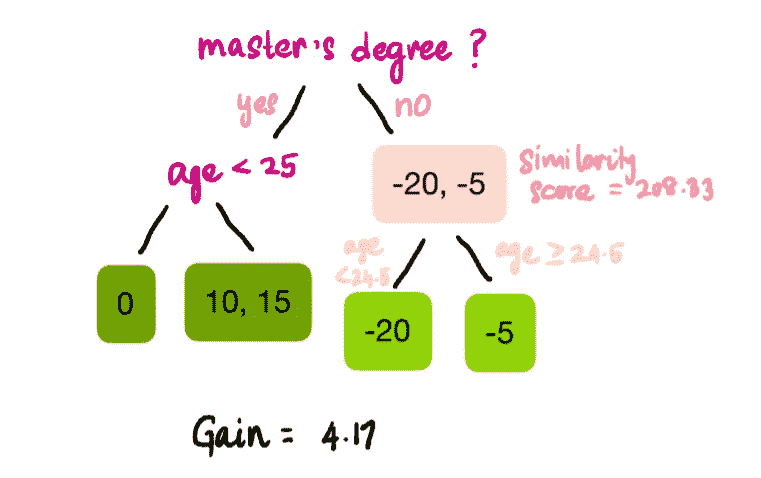 master's degree ?
yes
no
age < 25
-20, -5
similarity
score = 208.33
age
<24.5
age ≥ 24.5
0
10, 15
-20
-5
Gain = 4.17